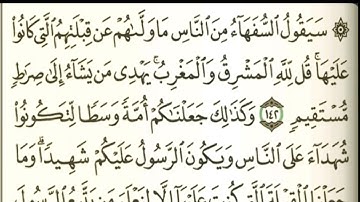 ۞ سَيَقُولُ ٱلسُّفَهَآءُ مِنَ ٱلنَّاسِ مَا وَلَّىٰهُمْ عَن قِبْلَتِهِمُ ٱلَّتِى كَانُوا۟
عَلَيْهَا ۚ قُل لِّلَّهِ ٱلْمَشْرِقُ وَٱلْمَغْرِبُ ۚ يَهْدِى مَن يَشَآءُ إِلَىٰ صِرَٰطٍ
مُّسْتَقِيمٍ ١٤٢ وَكَذَٰلِكَ جَعَلْنَٰكُمْ أُمَّةً وَسَطًا لِّتَكُونُوا۟
شُهَدَآءَ عَلَى ٱلنَّاسِ وَيَكُونَ ٱلرَّسُولُ عَلَيْكُمْ شَهِيدًا ۗ وَمَا
جَعَلْنَا ٱلْقِبْلَةَ ٱلَّتِى كُنتَ عَلَيْهَآ إِلَّا لِنَعْلَمَ مَن يَتَّبِعُ ٱلرَّسُولَ